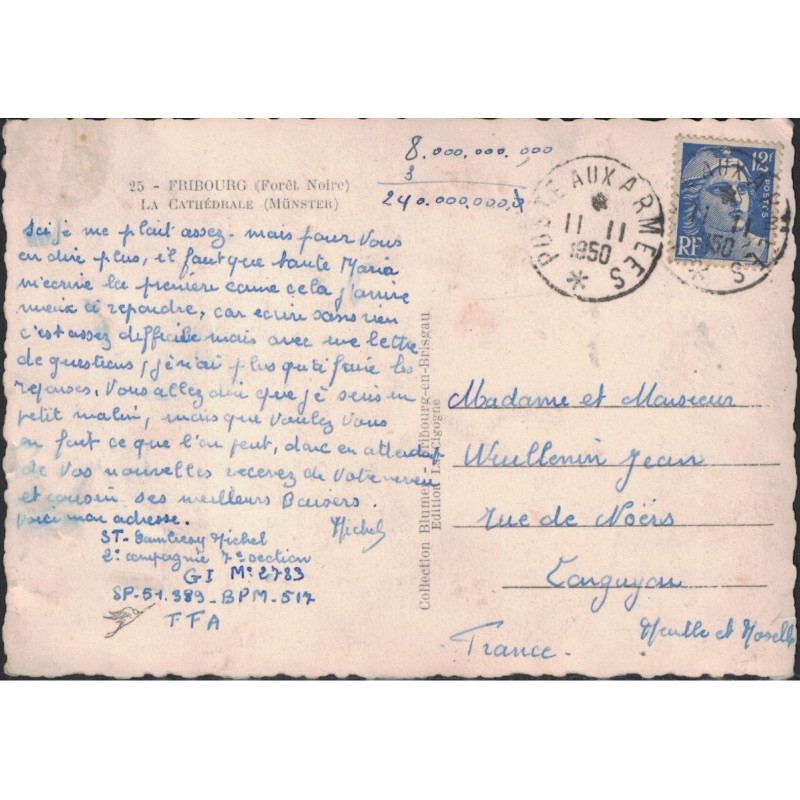 8.000.000.000
3
240.000.000,0
25 - FRIBOURG (Forêt Noire)
LA CATHÉDRALE (MÜNSTER)
POSTE AUX ARMEES
11 11
1950
12F
POSTES
RF
Ici je me plait assez - mais pour vous
en dire plus, il faut que tante Maria
m'ecrive la première comme cela j'arrive
mieux a repondre, car ecrire sans rien
c'est assez difficile mais avec une lettre
de questions, je n'ai plus qu'a faire les
reponses. Vous allez dire que je suis un
petit malin, mais que voulez vous
on fait ce que l'on peut, donc en attendant
de vos nouvelles recevez de votre neveu
et cousin ses meilleurs Baisers.
Voici mon adresse. Michel
ST- Michel
2e compagnie 7e section
GI Me 2783
SP-51.389-BPM-517
TFA
Collection Blumer - Fribourg-en-Brisgau
Edition La Cigogne
Madame et Monsieur
Wuillemin Jean
rue de Noërs
Longuyon
Meurthe et Moselle
France.